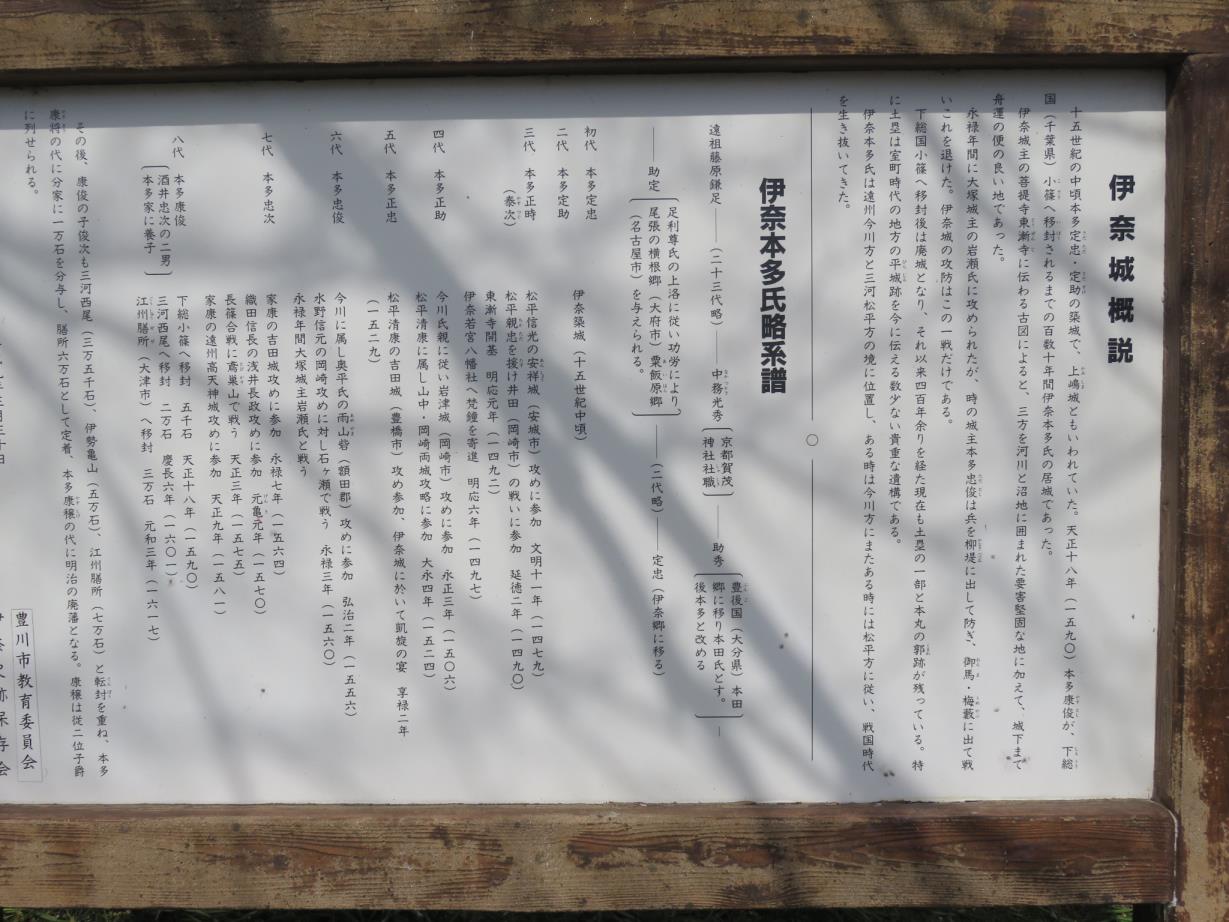 伊奈城概説
十五世紀の中頃本多定忠・定助の築城で、上嶋城ともいわれていた。天正十八年（一五九〇）本多康俊が、下総
国（千葉県）小篠へ移封されるまでの百数十年間伊奈本多氏の居城であった。
伊奈城主の菩提寺東漸寺に伝わる古図によると、三方を河川と沼地に囲まれた要害堅固な地に加えて、城下まで
舟運の便の良い地であった。
永禄年間に大塚城主の岩瀬氏に攻められたが、時の城主本多忠俊は兵を柳堤に出して防ぎ、御馬・梅藪に出て戦
いこれを退けた。伊奈城の攻防はこの一戦だけである。
下総国小篠へ移封後は廃城となり、それ以来四百年余りを経た現在も土塁の一部と本丸の郭跡が残っている。特
に土塁は室町時代の地方の平城跡を今に伝える数少ない貴重な遺構である。
伊奈本多氏は遠州今川方と三河松平方の境に位置し、ある時は今川方にまたある時には松平方に従い、戦国時代
を生き抜いてきた。
伊奈本多氏略系譜
遠祖藤原鎌足――（二十三代略）――中務光秀〔京都賀茂
神社社職〕――助秀〔豊後国（大分県）本田
郷に移り本田氏とす。
後本多と改める〕―
――助定〔足利尊氏の上洛に従い功労により、
尾張の横根郷（大府市）粟飯原郷
（名古屋市）を与えられる。〕――（二代略）――定忠（伊奈郷に移る）
初代 本多定忠 伊奈築城（十五世紀中頃）
二代 本多定助
三代 本多正時
（泰次） 松平信光の安祥城（安城市）攻めに参加 文明十一年（一四七九）
松平親忠を援け井田（岡崎市）の戦いに参加 延徳二年（一四九〇）
東漸寺開基 明応元年（一四九二）
伊奈若宮八幡社へ梵鐘を寄進 明応六年（一四九七）
四代 本多正助 今川氏親に従い岩津城（岡崎市）攻めに参加 永正三年（一五〇六）
松平清康に属し山中・岡崎両城攻略に参加 大永四年（一五二四）
五代 本多正忠 松平清康の吉田城（豊橋市）攻め参加、伊奈城に於いて凱旋の宴 享禄二年
（一五二九）
六代 本多忠俊 今川に属し奥平氏の雨山砦（額田郡）攻めに参加 弘治二年（一五五六）
水野信元の岡崎攻めに対し石ヶ瀬で戦う 永禄三年（一五六〇）
永禄年間大塚城主岩瀬氏と戦う
七代 本多忠次 家康の吉田城攻めに参加 永禄七年（一五六四）
織田信長の浅井長政攻めに参加 元亀元年（一五七〇）
長篠合戦に鳶巣山で戦う 天正三年（一五七五）
家康の遠州高天神城攻めに参加 天正九年（一五八一）
八代 本多康俊
〔酒井忠次の二男
本多家に養子〕 下総小篠へ移封 五千石 天正十八年（一五九〇）
三河西尾へ移封 二万石 慶長六年（一六〇一）
江州膳所（大津市）へ移封 三万石 元和三年（一六一七）
その後、康俊の子俊次も三河西尾（三万五千石）、伊勢亀山（五万石）、江州膳所（七万石）と転封を重ね、本多
康将の代に分家に一万石を分与し、膳所六万石として定着、本多康穣の代に明治の廃藩となる。康穣は従二位子爵
に列せられる。
豊川市教育委員会